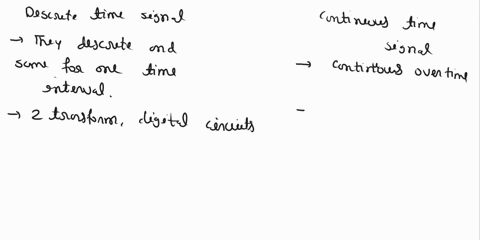 Descrete time signal
→ They descrete and
same for one time
interval.
→ Z transform, digital circuits
Continuous time
signal
→ continous over time
–